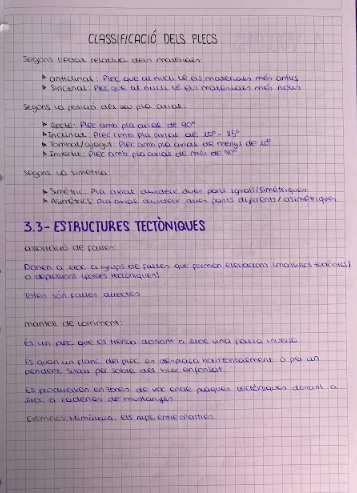 CLASSIFICACIÓ DELS PLECS
Segons l'edat relativa dels materials:
▸ Anticlinal: Plec que al nucli té els materials més antics
▸ Sinclinal: Plec que al nucli té els materials més nous
Segons la posició del seu pla axial:
▸ Recte: Plec amb pla axial de 90°
▸ Inclinat: Plec amb pla axial de 10° - 85°
▸ Tombat/ajagut: Plec amb pla axial de menys de 10°
▸ Invertit: Plec amb pla axial de més de 90°
Segons la simetria:
▸ Simètric: Pla axial divideix dues parts iguals/simètriques
▸ Asimètrics: Pla axial divideix dues parts diferents/asimètriques
3.3- ESTRUCTURES TECTÒNIQUES
associació de falles:
Donen a lloc a grups de falles que formen elevacions (massissos tectònics)
o depressions (fosses tectòniques)
Totes són falles directes
mantell de corriment:
És un plec que es trenca donant a lloc una falla inversa
És quan un flanc del plec es desplaça horitzontalment o per un
pendent suau per sobre del bloc enfonsat
Es produeixen en zones de xoc entre plaques tectòniques donant a
lloc a cadenes de muntanyes
Exemples: Himàlaia, els Alps, entre d'altres